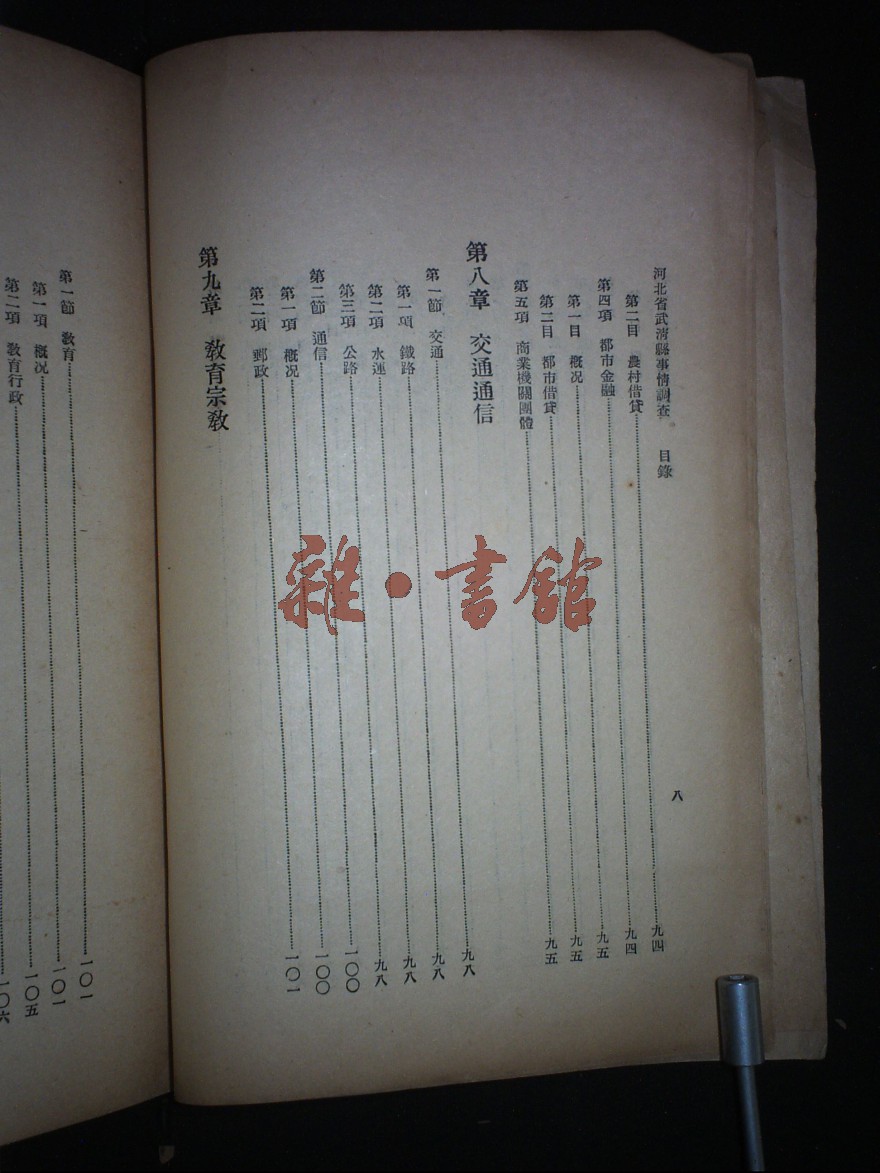 河北省武清縣事情調查　目錄　八
第二目　農村借貸……九四
第四項　都市金融……九四
第一目　概况……九五
第二目　都市借貸……九五
第五項　商業機關團體……九五
第八章　交通通信
第一節　交通……九八
第一項　鐵路……九八
第二項　水運……九八
第三項　公路……九八
第二節　通信……一〇〇
第一項　概况……一〇〇
第二項　郵政……一〇一
第九章　敎育宗敎
第一節　敎育……一〇一
第一項　概况……一〇一
第二項　敎育行政……一〇五
一〇六
雜·書館